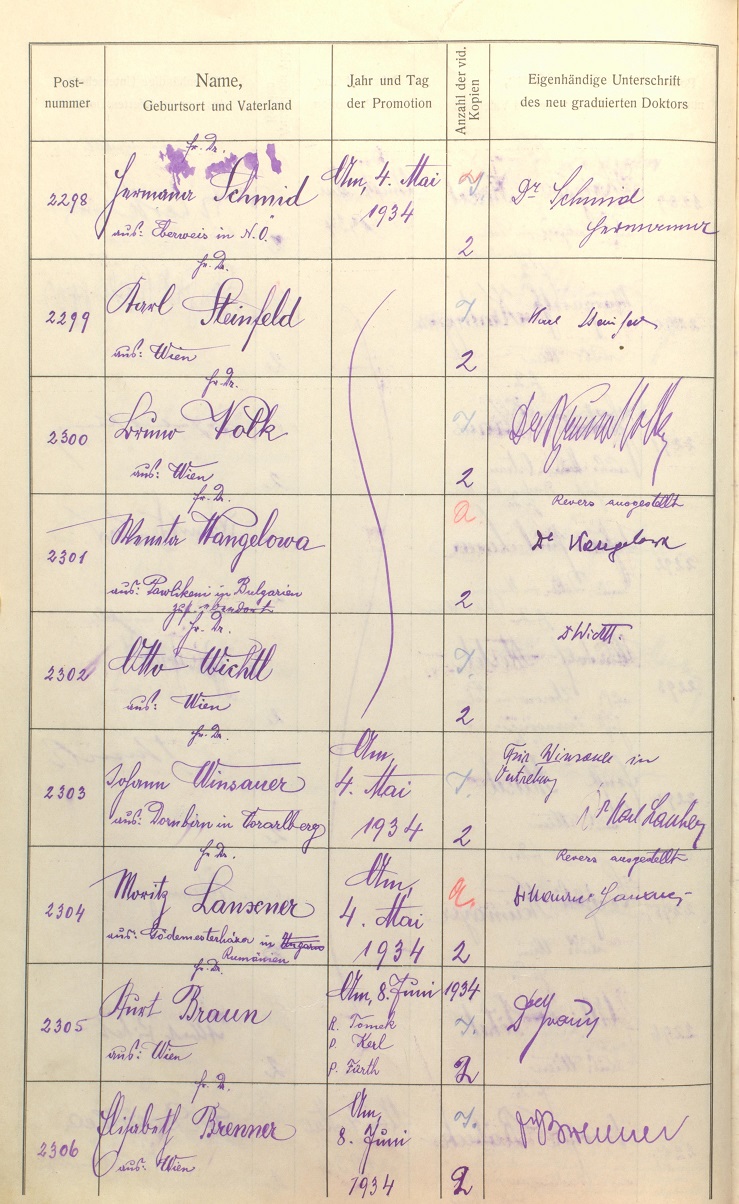 Post-
nummer
Name,
Geburtsort und Vaterland
Jahr und Tag
der Promotion
Anzahl der vid.
Kopien
Eigenhändige Unterschrift
des neu graduierten Doktors
2298
Fr. Dr.
Hermann Schmid
aus: Eberweis in N.Ö.
Am, 4. Mai
1934
2
Dr Schmid
Hermann
2299
Fr. Dr.
Karl Steinfeld
aus: Wien
2
Karl Steinfeld
2300
Fr. Dr.
Bruno Volk
aus: Wien
2
Dr Bruno Volk
2301
Fr. Dr.
Weneta Wangelowa
aus: Pawlikeni in Bulgarien
zust. ebendort
a.
2
Revers ausgestellt
Dr Vangelowa
2302
Fr. Dr.
Otto Wichtl
aus: Wien
2
Dr Wichtl.
2303
Fr. Dr.
Johann Winsauer
aus: Dornbirn in Vorarlberg
Am,
4. Mai
1934
2
Für Winsauer in
Vertretung
Dr Karl
2304
Fr. Dr.
Moritz Lanxner
aus: in Ungarn
Rumänien
Am,
4. Mai
1934
a.
2
Revers ausgestellt
Dr Maurice
2305
Fr. Dr.
Kurt Braun
aus: Wien
Am, 8. Juni 1934
R. Tomek
D. Kerl
P. Furth
2
Braun
2306
Fr. Dr.
Elisabeth Brenner
aus: Wien
Am,
8. Juni
1934
2
Dr Brenner